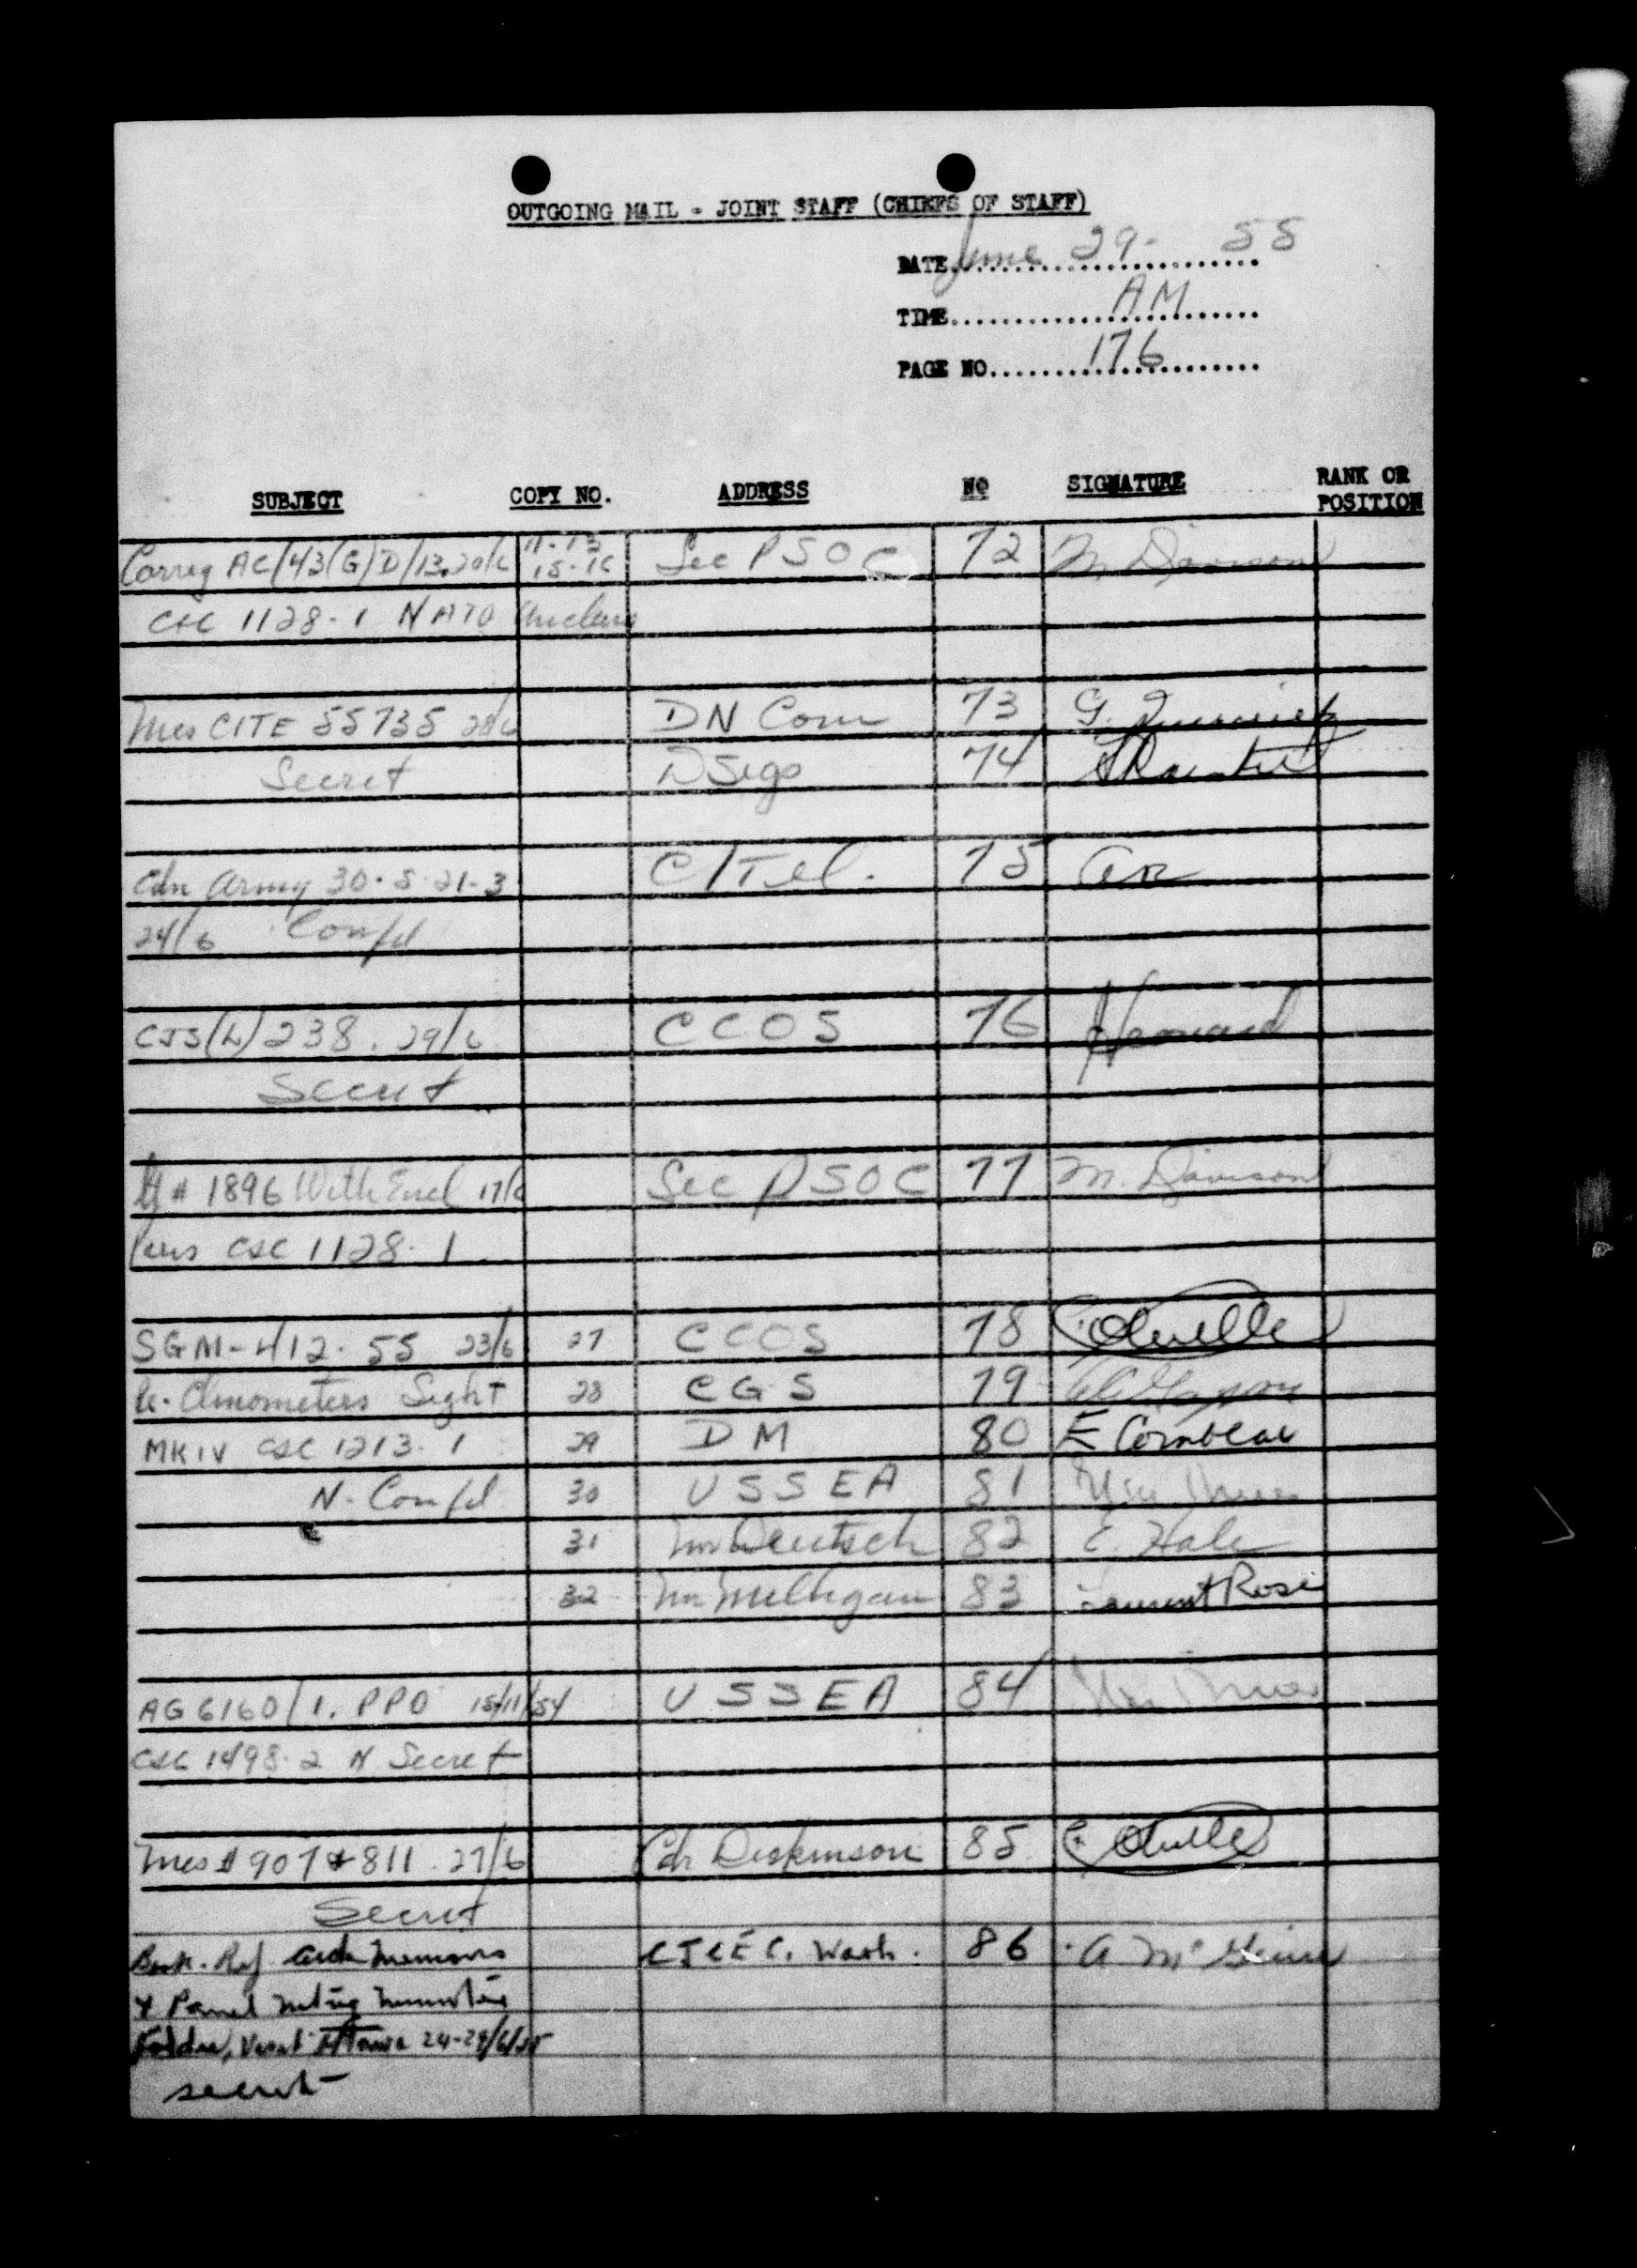 OUTGOING MAIL - JOINT STAFF (CHIEFS OF STAFF)
DATE June 29- 55
TIME AM
PAGE NO. 176
SUBJECT COPY NO. ADDRESS NO SIGNATURE RANK OR POSITION
Corrig AC/43(G)D/13. 20/6 11-13 15-16 Sec PSOC 72 M. Dawson
CSC 1128-1 NATO Unclass
Mes CITE 55735 28/6 DN Com 73 G.
Secret DSigs 74
Cdn Army 30-5-21-3 C/Tel. 75
24/6 Confd
CJS(L) 238. 29/6 CCOS 76
Secret
# 1896 With Encl 17/6 Sec PSOC 77 M. Dawson
CSC 1128-1
SGM-412-55 23/6 27 CCOS 78
Re- Sight 28 CGS 79
MK IV CSC 1213-1 29 DM 80 E
N-Confd 30 USSEA 81
31 Mr Deutsch 82 E. Hale
32 Mr Milligan 83 Rose
AG 6160/1. PPO 15/11/54 USSEA 84
CSC 1498-2 N Secret
Mes # 907 & 811. 27/6 Cdr 85
Secret
Book. Ref CJCEC. Wash. 86 A
& Panel
Ottawa 24-29/6/55
secret